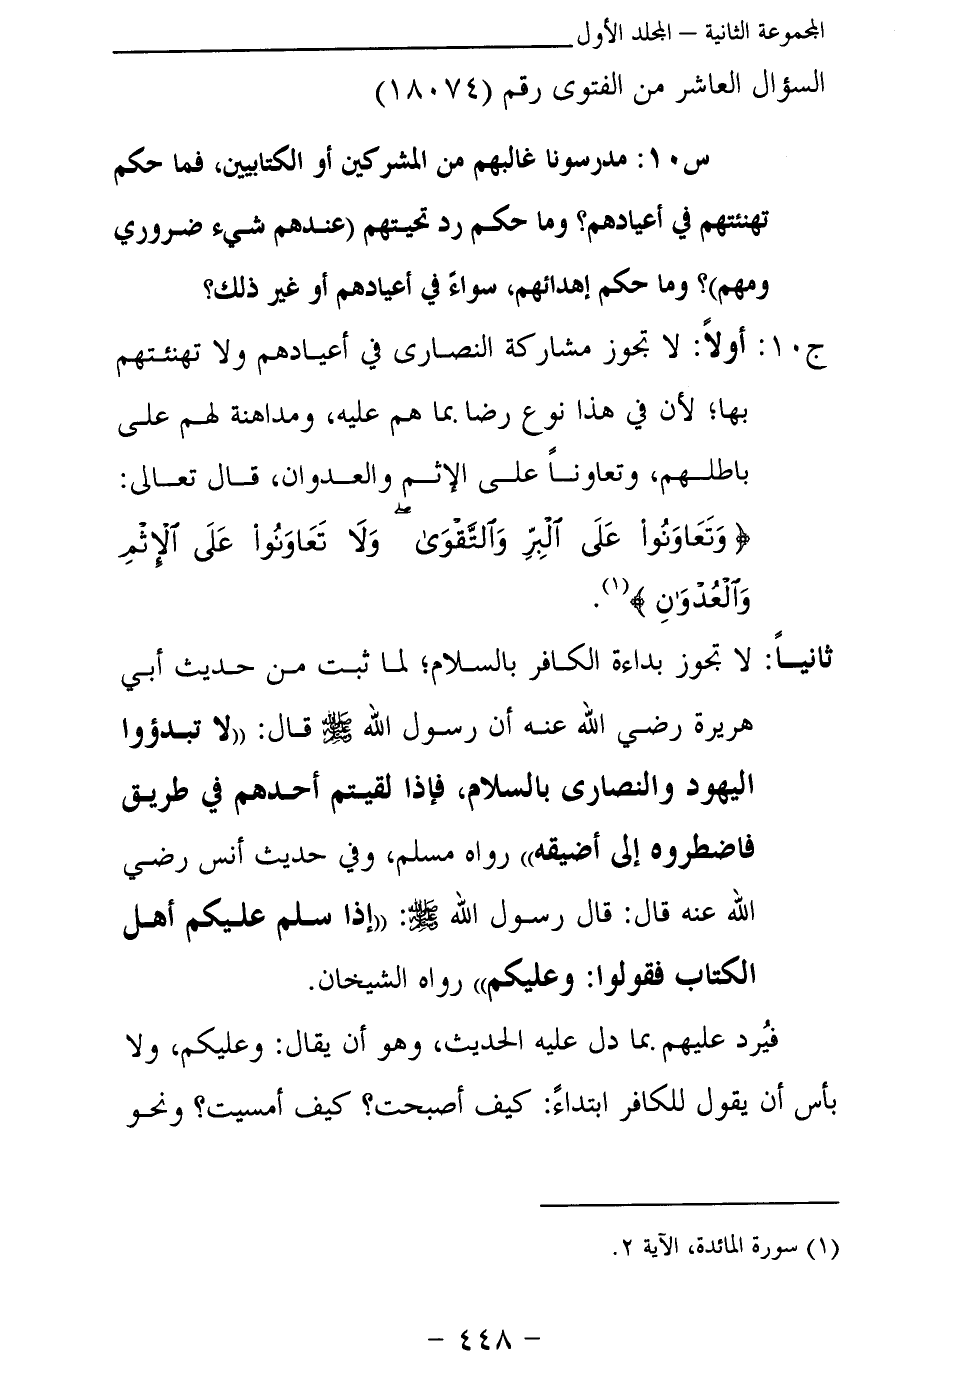 المجموعة الثانية – المجلد الأول
السؤال العاشر من الفتوى رقم (١٨٠٧٤)
س١٠: مدرسونا غالبهم من المشركين أو الكتابيين، فما حكم
تهنئتهم في أعيادهم؟ وما حكم رد تحيتهم (عندهم شيء ضروري
ومهم)؟ وما حكم إهدائهم، سواءً في أعيادهم أو غير ذلك؟
ج١٠: أولاً: لا تجوز مشاركة النصارى في أعيادهم ولا تهنئتهم
بها؛ لأن في هذا نوع رضا بما هم عليه، ومداهنة لهم على
باطلهم، وتعاوناً على الإثم والعدوان، قال تعالى:
﴿ وَتَعَاوَنُوا۟ عَلَى ٱلْبِرِّ وَٱلتَّقْوَىٰ ۖ وَلَا تَعَاوَنُوا۟ عَلَى ٱلْإِثْمِ
وَٱلْعُدْوَٰنِ ﴾(١).
ثانياً: لا تجوز بداءة الكافر بالسلام؛ لما ثبت من حديث أبي
هريرة رضي الله عنه أن رسول الله ﷺ قال: ((لا تبدؤوا
اليهود والنصارى بالسلام، فإذا لقيتم أحدهم في طريق
فاضطروه إلى أضيقه)) رواه مسلم، وفي حديث أنس رضي
الله عنه قال: قال رسول الله ﷺ: ((إذا سلم عليكم أهل
الكتاب فقولوا: وعليكم)) رواه الشيخان.
فيُرد عليهم بما دل عليه الحديث، وهو أن يقال: وعليكم، ولا
بأس أن يقول للكافر ابتداءً: كيف أصبحت؟ كيف أمسيت؟ ونحو
(١) سورة المائدة، الآية ٢.
– ٤٤٨ –